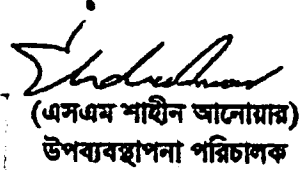 (এসএম শাহীন আনোয়ার)
উপব্যবস্থাপনা পরিচালক